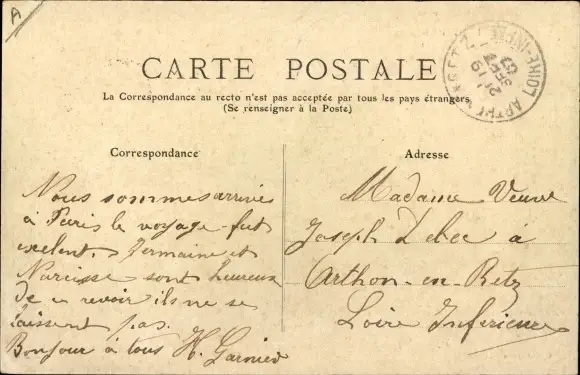 A
CARTE POSTALE
La Correspondance au recto n'est pas acceptée par tous les pays étrangers
(Se renseigner à la Poste)
Correspondance
Nous sommes arrivés
à Paris le voyage fut
exelent. Germaine et
Narcisse sont heureux
de se revoir ils ne se
laissent pas.
Bonjour à tous H. Garnier
Adresse
Madame Veuve
Joseph à
Arthon-en-Retz
Loire Inférieure